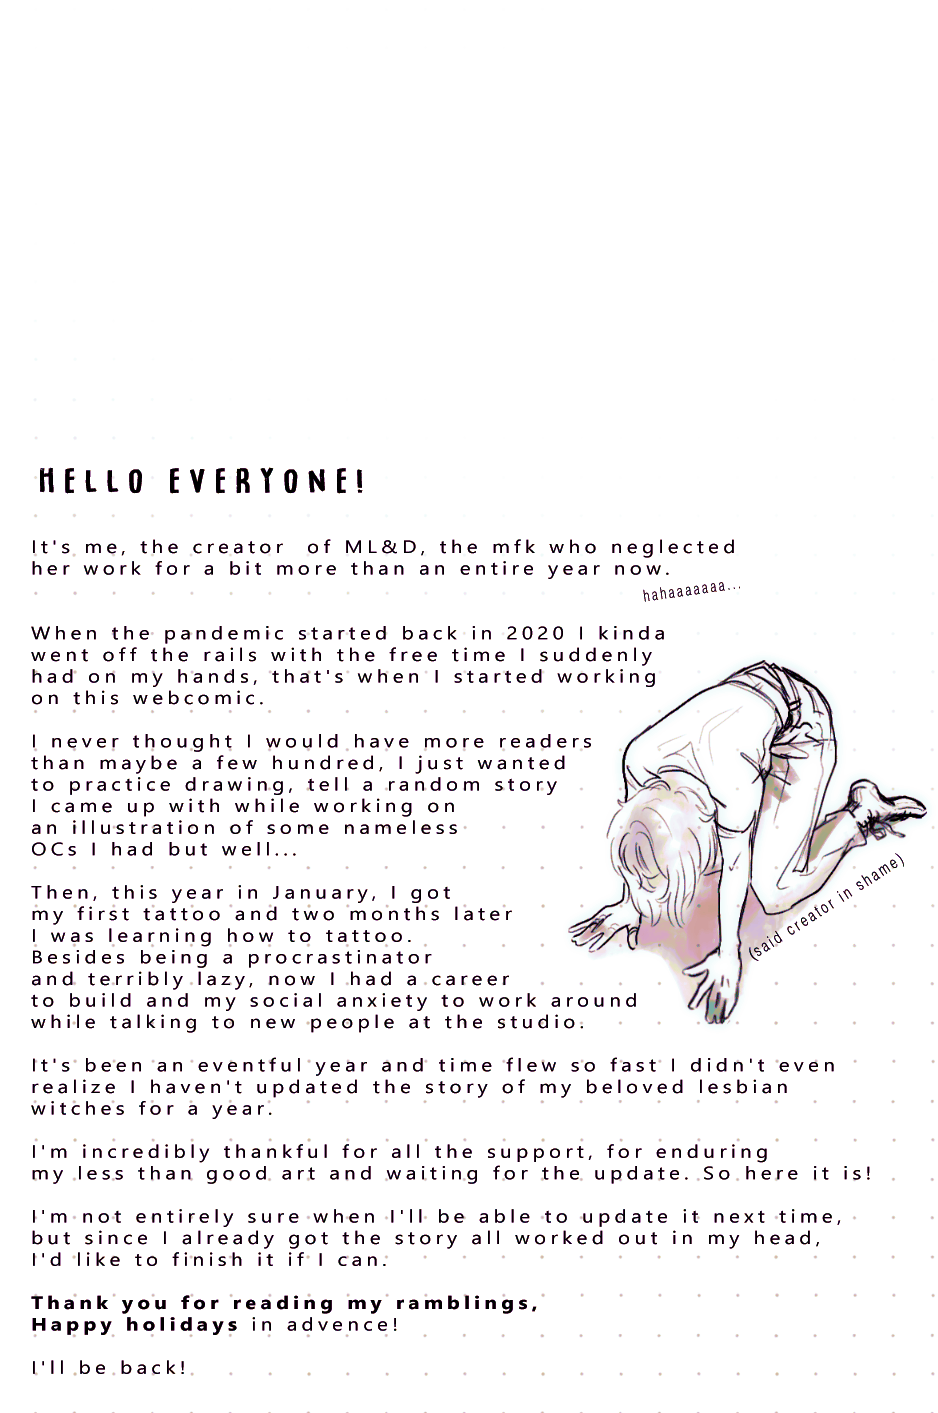 HELLO EVERYONE!
It's me, the creator of ML&D, the mfk who neglected
her work for a bit more than an entire year now.
hahaaaaaaa...
When the pandemic started back in 2020 I kinda
went off the rails with the free time I suddenly
had on my hands, that's when I started working
on this webcomic.
I never thought I would have more readers
than maybe a few hundred, I just wanted
to practice drawing, tell a random story
I came up with while working on
an illustration of some nameless
OCs I had but well...
Then, this year in January, I got
my first tattoo and two months later
I was learning how to tattoo.
Besides being a procrastinator
and terribly lazy, now I had a career
to build and my social anxiety to work around
while talking to new people at the studio.
(said creator in shame)
It's been an eventful year and time flew so fast I didn't even
realize I haven't updated the story of my beloved lesbian
witches for a year.
I'm incredibly thankful for all the support, for enduring
my less than good art and waiting for the update. So here it is!
I'm not entirely sure when I'll be able to update it next time,
but since I already got the story all worked out in my head,
I'd like to finish it if I can.
Thank you for reading my ramblings,
Happy holidays in advence!
I'll be back!